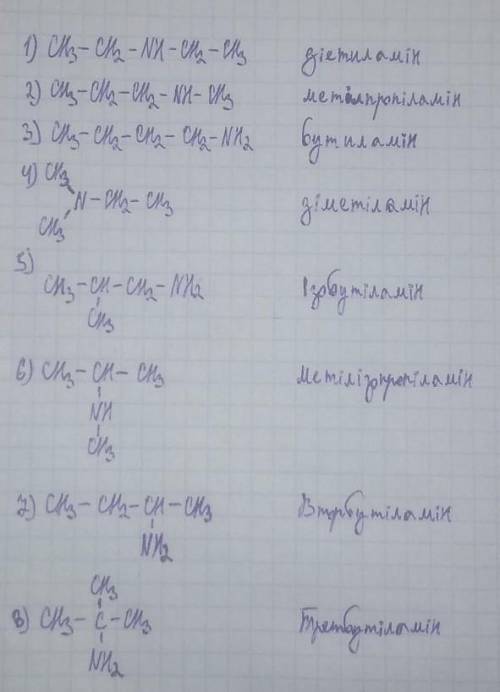 1) CH3 – CH2 – NH – CH2 – CH3 діетиламін
2) CH3 – CH2 – CH2 – NH – CH3 метілпропіламін
3) CH3 – CH2 – CH2 – CH2 – NH2 бутиламін
4) CH3
N – CH2 – CH3 зіметіламін
CH3
5)
CH3 – CH – CH2 – NH2 Ізобутіламін
CH3
6) CH3 – CH – CH3 Метілізопропіламін
NH
CH3
7) CH3 – CH2 – CH – CH3 Вторбутіламін
NH2
CH3
8) CH3 – C – CH3 Третбутіламін
NH2